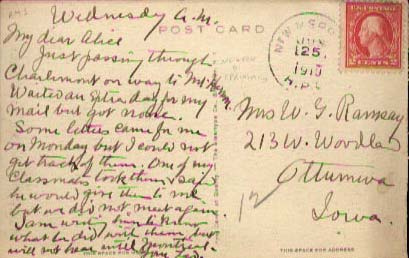 Wednesday a.m.
POST CARD
My dear Alice
Just passing through
Charlemont on way to
Waited an extra day for my
mail but got none.
Some letters came for me
on Monday but I could not
get hold of them. One of my
Classmates took them, said
he would give them to me
but we did not meet again.
I am writing him to know
what he did with them but
will not hear until Montreal.
THIS SPACE FOR ADDRESS
25
1913
2 CENTS 2
Mrs W. G. Ramsay
213 W. Woodland
Ottumwa
Iowa.
12